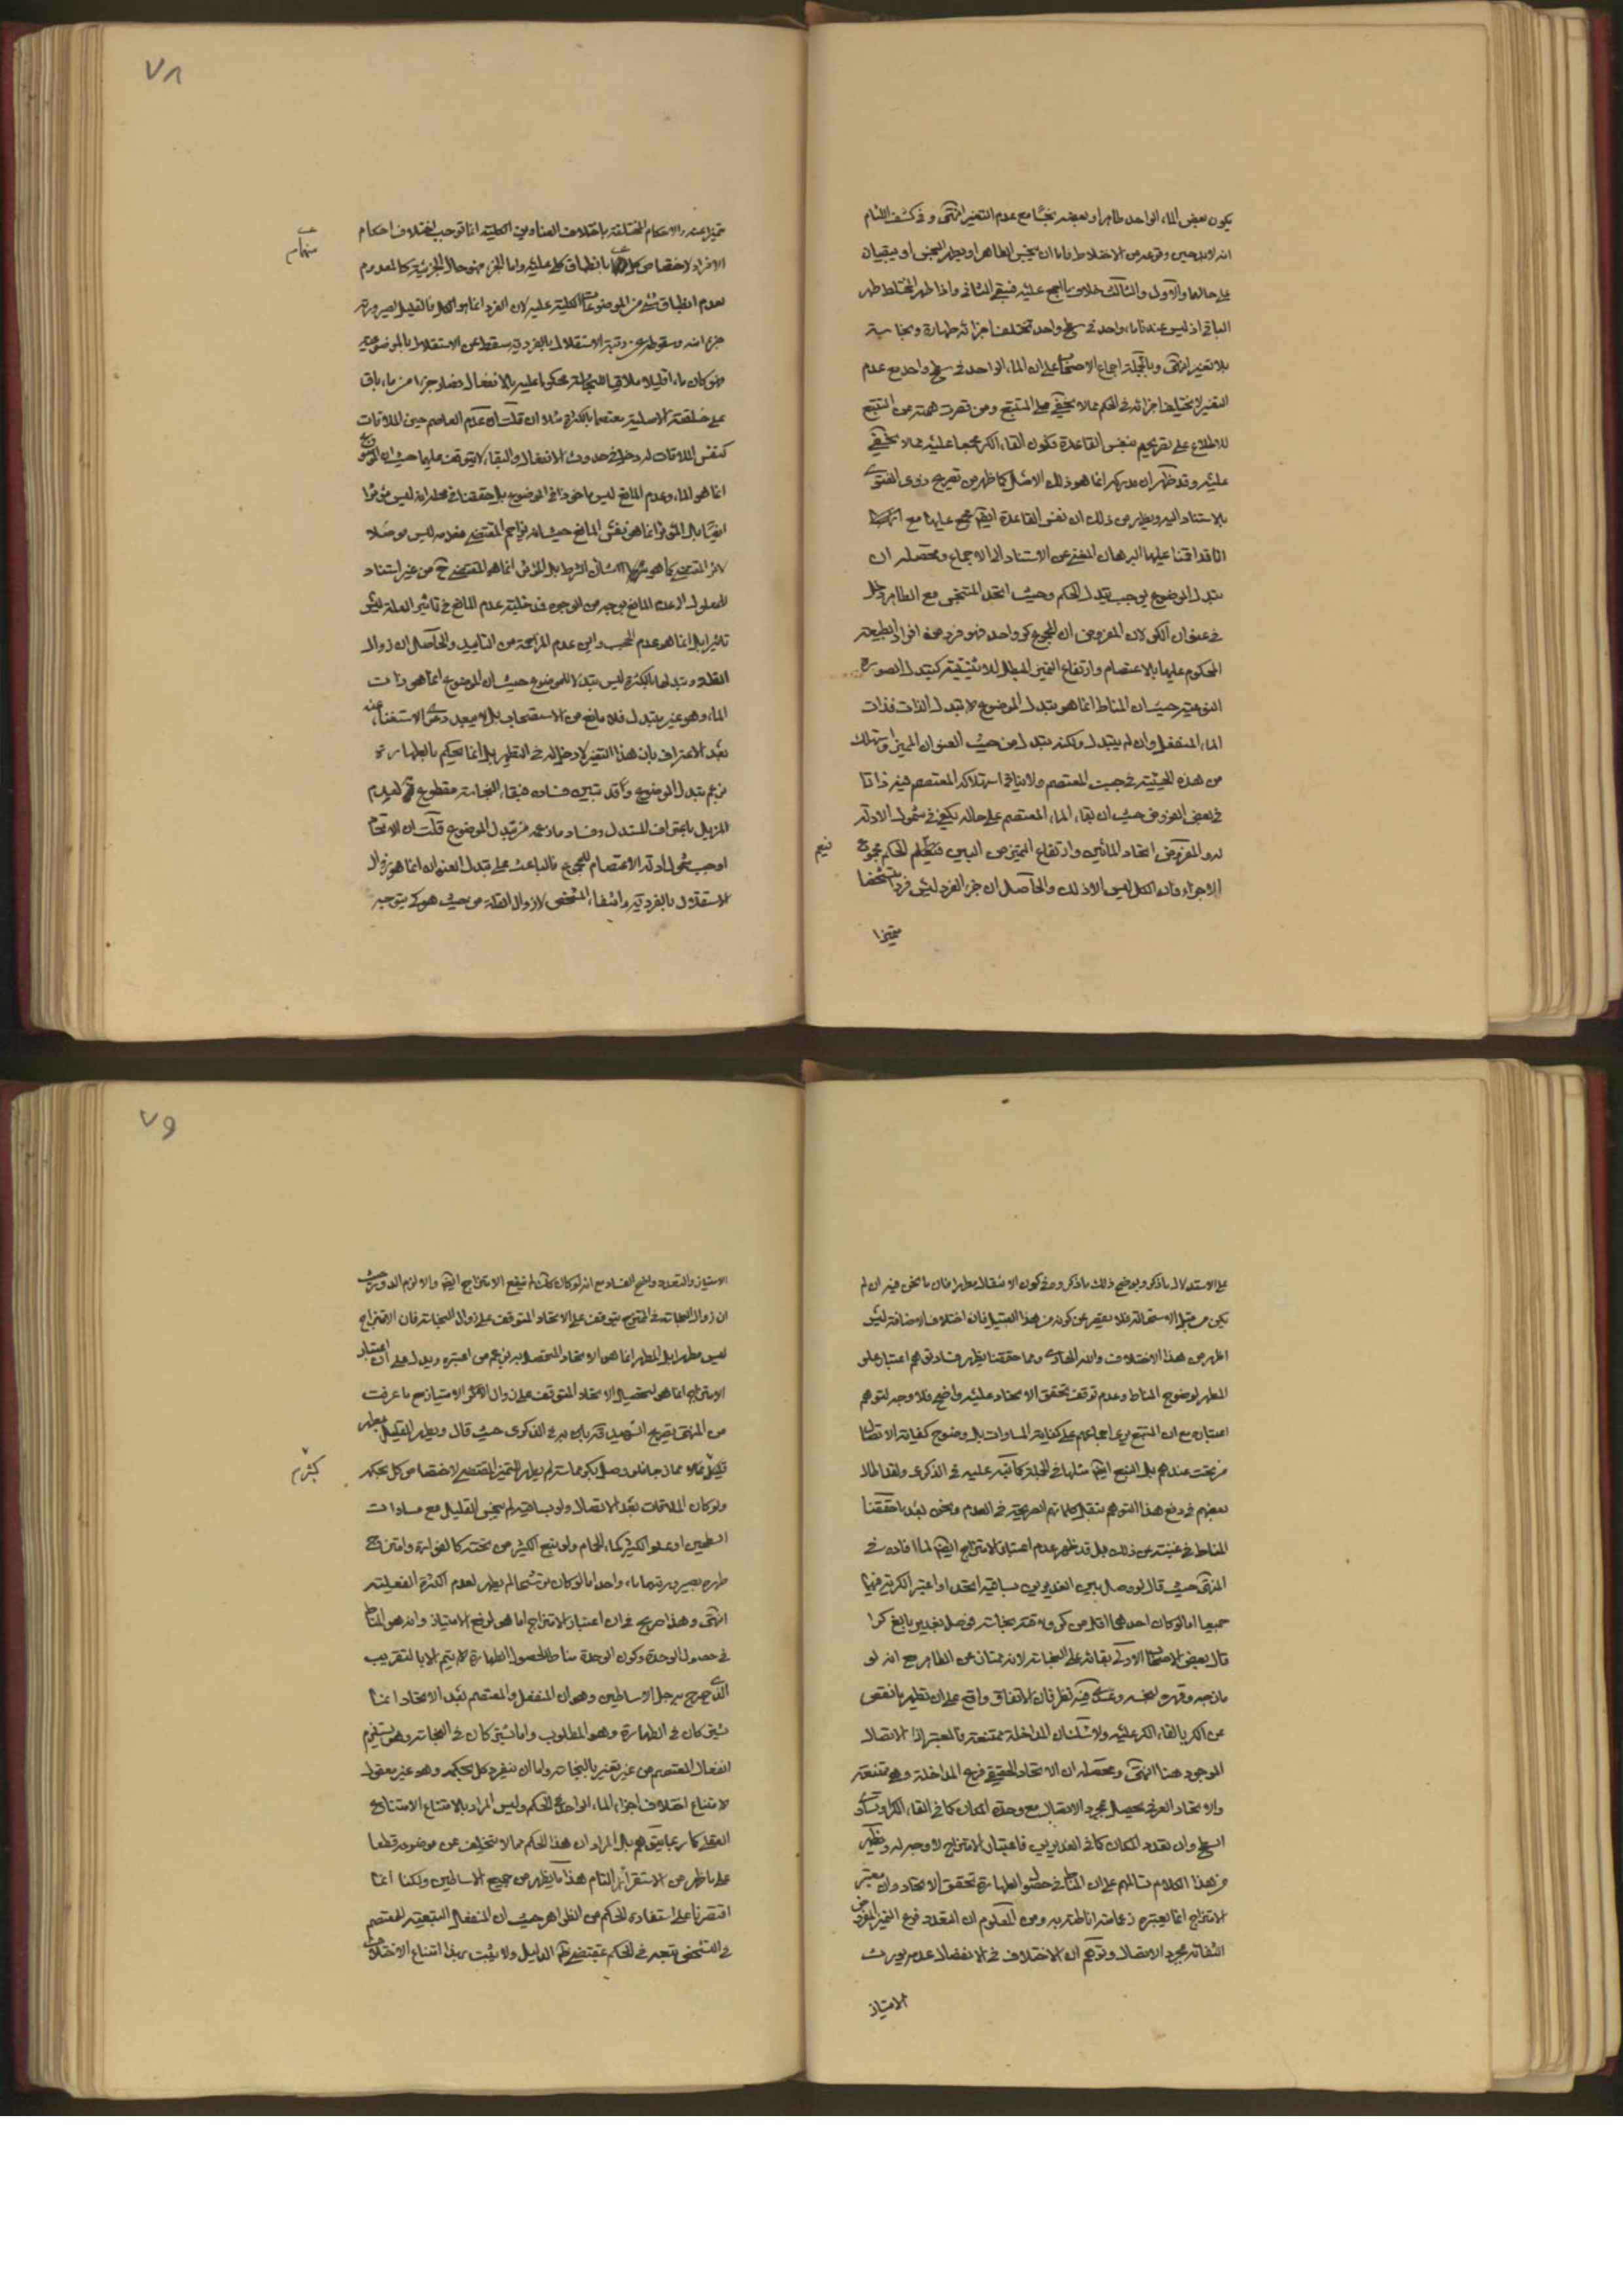 ٧٨
يكون بعض الماء الواحد طاهرا وبعضه نجسا مع عدم التغير انتهى وفي كشف اللثام
انه لابد حين وقوعه من الاختلاط فاما ان ينجس الطاهر او يطهر النجس او يبقيان
على حالهما والاول والثالث خلاف ما اجمع عليه فبقى الثاني واذا طهر المختلط طهر
الباقي اذ ليس عندنا ماء واحد في سطح واحد تختلف اجزائه طهارة ونجاسة
بلا تغير انتهى وبالجملة اجماع الاصحاب على ان الماء الواحد في سطح واحد مع عدم
التغير لا يختلف اجزائه في الحكم مما لا يخفى على المتتبع ومن قصرت همته عن التتبع
للاطلاع على تصريحهم بنفس القاعدة فكون القاء الكر مجمعا عليه مما لا يخفى
عليه وقد ظهر ان مدركه انما هو ذلك الاصل كما ظهر من تصريح ذوي الفتوى
بالاستناد اليه ويظهر من ذلك ان نفس القاعدة ايضا مجمع عليها مع
انا قد اقمنا عليها البرهان المغني عن الاستناد الى الاجماع ومحصله ان
تبدل الموضوع يوجب تبدل الحكم وحيث اتحد المتنجس مع الطاهر دخل
في عنوان الكر لان المفروض ان المجموع كر واحد فهو فرد من افراد الطبيعة
المحكوم عليها بالاعتصام وارتفاع التميز المبطل للاثنينية كتبدل الصورة
النوعية حيث ان المناط انما هو تبدل الموضوع لا تبدل الذات فذات
الماء المنفعل وان لم يتبدل ولكنه تبدل من حيث العنوان المميز واستهلك
من هذه الحيثية في جنب المعتصم ولا ينافي استهلاكه المعتصم فيه ذاتا
في بعض الفروض حيث ان بقاء الماء المعتصم على حاله يكفي في شمول الادلة
له والمفروض اتحاد المائين وارتفاع التميز من البين فيعم الحكم مجموع
الاجزاء فان الكل ليس الا ذلك والحاصل ان جزء الفرد ليس فردا متشخصا
متميزا
فيعم
متميزا عنه والاحكام المختلفة باختلاف العناوين الكلية انما توجب اختلاف احكام
الافراد لاختصاص كل بانطباق كلي عليه واما الجزء فهو حال الجزئية كالمعدوم
منهما م
لعدم انطباق شيء من الموضوعات الكلية عليه لان الفرد انما هو الكل فالقليل لصيرورته
جزء منه وسقوطه عن رتبة الاستقلال بالفردية سقط عن الاستقلال بالموضوعية
فلو كان ماء قليلا ملاقيا للنجاسة محكوما عليه بالانفعال فصار جزءا من ماء باق
على خلقته الاصلية معتصما بالكثرة مثلا ان قلت ان عدم العاصم حين الملاقات
كنفس الملاقات له دخل في حدوث الانفعال والبقاء لا يتوقف عليها حيث ان الموضوع
انما هو الماء وعدم المانع ليس ماخوذا في الموضوع بل حققنا في محله انه ليس مؤثرا
ايضا بل المؤثر انما هو نفس المانع حيث انه يزاحم المقتضي فعدمه ليس موصلا
لاثر المقتضي كما هو شان الشرط بل المؤثر انما هو المقتضي ح من غير استناد
للمعلول الى عدم المانع بوجه من الوجوه فدخلية عدم المانع في تاثير العلة ليس
تاثيرا بل انما هو عدم الحجب واين عدم المزاحمة من التاييد والحاصل ان زوال
القلة وتبدلها بالكثرة ليس تبدلا للموضوع حيث ان الموضوع انما هو ذات
الماء وهو غير متبدل فلا مانع من الاستصحاب بل لا يبعد دعوى الاستغناء عنه
بعد الاعتراف بان هذا التغير لا دخل له في التطهير بل انما يحكم بالطهارة
بزعم تبدل الموضوع وقد تبين فساده فبقاء النجاسة مقطوع به لعدم
المزيل باعتراف المستدل وفساد ما زعمه من تبدل الموضوع قلت ان الاتحاد
اوجب شمول ادلة الاعتصام للمجموع فالباعث على تبدل العنوان انما هو زوال
الاستقلال بالفردية وانتفاء التشخص لا زوال القلة من حيث هو كي يتوجه
٧٩
على الاستدلال ما ذكر ويوضح ذلك ما ذكروه في كون الانتقال مطهرا فان ما نحن فيه ان لم
يكن من قبيل الاستحالة فلا يقصر عن كونه من هذا القبيل فان اختلاف الاضافة ليس
اظهر من هذا الاختلاف والله الهادي ومما حققنا يظهر فساد توهم اعتبار علو
المطهر لوضوح المناط وعدم توقف تحقق الاتحاد عليه واضح فلا وجه لتوهم
اعتباره مع ان المتتبع يرى اجماعهم على كفاية المساوات بل وضوح كفاية الاتصال
من تحت عندهم بل النبع ايضا مثلها في الجملة كما نبه عليه في الذكرى ولقد اطال
بعضهم في دفع هذا التوهم بنقل كلماتهم الصريحة في العدم ونحن بعد ما حققنا
المناط في غنية عن ذلك بل قد ظهر عدم اعتبار الامتزاج ايضا لما افاده في
المنتهى حيث قال لو وصل بين الغديرين بساقية اتحدا واعتبر الكرية فيهما
جميعا اما لو كان احدهما اقل من كر ولاقته نجاسة فوصل بغدير بالغ كرا
قال بعض الاصحاب الاولى بقائه على النجاسة لانه ممتاز عن الطاهر مع انه لو
مازجه وقهره لنجسه وعندي فيه نظر فان الاتفاق واقع على ان تطهير ما نقص
عن الكر بالقاء الكر عليه ولا شك ان المداخلة ممتنعة فالمعتبر اذا الاتصال
الموجود هنا انتهى ومحصله ان الاتحاد الحقيقي فرع المداخلة وهي ممتنعة
والاتحاد العرفي يحصل بمجرد الاتصال مع وحدة المكان كما في القاء الكر وتساوي
السطح وان تعدد المكان كما في الغديرين فاعتبار الامتزاج لا وجه له ويظهر
من هذا الكلام تسالمهم على ان المناط في حصول الطهارة تحقق الاتحاد وان معتبر
الامتزاج انما يعتبره زعما منه اناطته به ومن المعلوم ان التعدد فرع التميز المفروض
انتفائه بمجرد الاتصال وتوهم ان الاختلاف في الانفعال وعدمه يورث
الامتياز
الامتياز والتعدد واضح الفساد مع انه لو كان كك لم ينفع الامتزاج ايضا والا لزم الدور حيث
ان زوال النجاسة في الممتزج يتوقف على الاتحاد المتوقف على زوال النجاسة فان الامتزاج
ليس مطهرا بل المطهر انما هو الاتحاد المتحصل به بزعم من اعتبره ويدل على ان اعتبار
الامتزاج انما هو لتحصيل الاتحاد المتوقف على زوال الامتياز مع ما عرفت
من المنتهى تصريح الشهيد قده بان به في الذكرى حيث قال ويطهر القليل بمطهر
كثير م
ولو كان الملاقات بعد الاتصال ولو بساقية لم ينجس القليل مع مساوات
السطحين او علو الكثير كماء الحمام ولو نبع الكثير من تحته كالفوارة وامتزج
طهره بصيرورتهما ماء واحدا اما لو كان ترشحا لم يطهر لعدم الكثرة الفعلية
انتهى وهذا صريح في ان اعتبار الامتزاج انما هو لرفع الامتياز وانه هو المناط
في حصول الوحدة وكون الوحدة مناطا لحصول الطهارة لا يتم الا بالتقريب
الذي صرح به جل الاساطين وهو ان المنفعل والمعتصم بعد الاتحاد اما
يشتركان في الطهارة وهو المطلوب واما يشتركان في النجاسة وهو يستلزم
انفعال المعتصم من غير تغير بالنجاسة واما ان ينفرد كل بحكمه وهو غير معقول
لامتناع اختلاف اجزاء الماء الواحد في الحكم وليس المراد بالامتناع الامتناع
العقلي كما ربما يتوهم بل المراد ان هذا الحكم مما لا يتخلف عن موضوعه قطعا
على ما ظهر من الاستقراء التام هذا ما يظهر من جميع الاساطين ولكنا انما
اقتصرنا على استفادة الحكم من الظواهر حيث ان المنفعل لتبعيته للمعتصم
في التشخص يتبعه في الحكم بمقتضى الدليل ولا يثبت بهذا امتناع الاختلاف